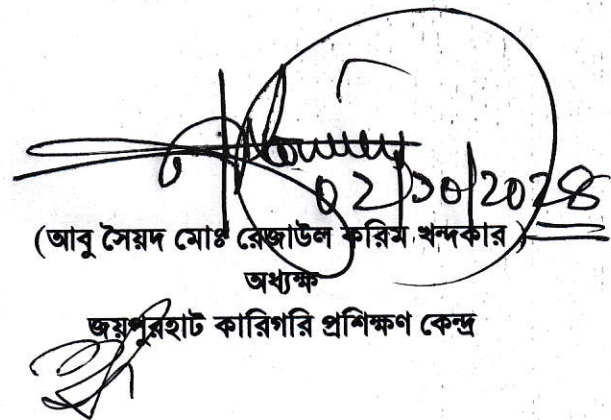 ০২/১০/২০২৪
(আবু সৈয়দ মোঃ রেজাউল করিম খন্দকার)
অধ্যক্ষ
জয়পুরহাট কারিগরি প্রশিক্ষণ কেন্দ্র